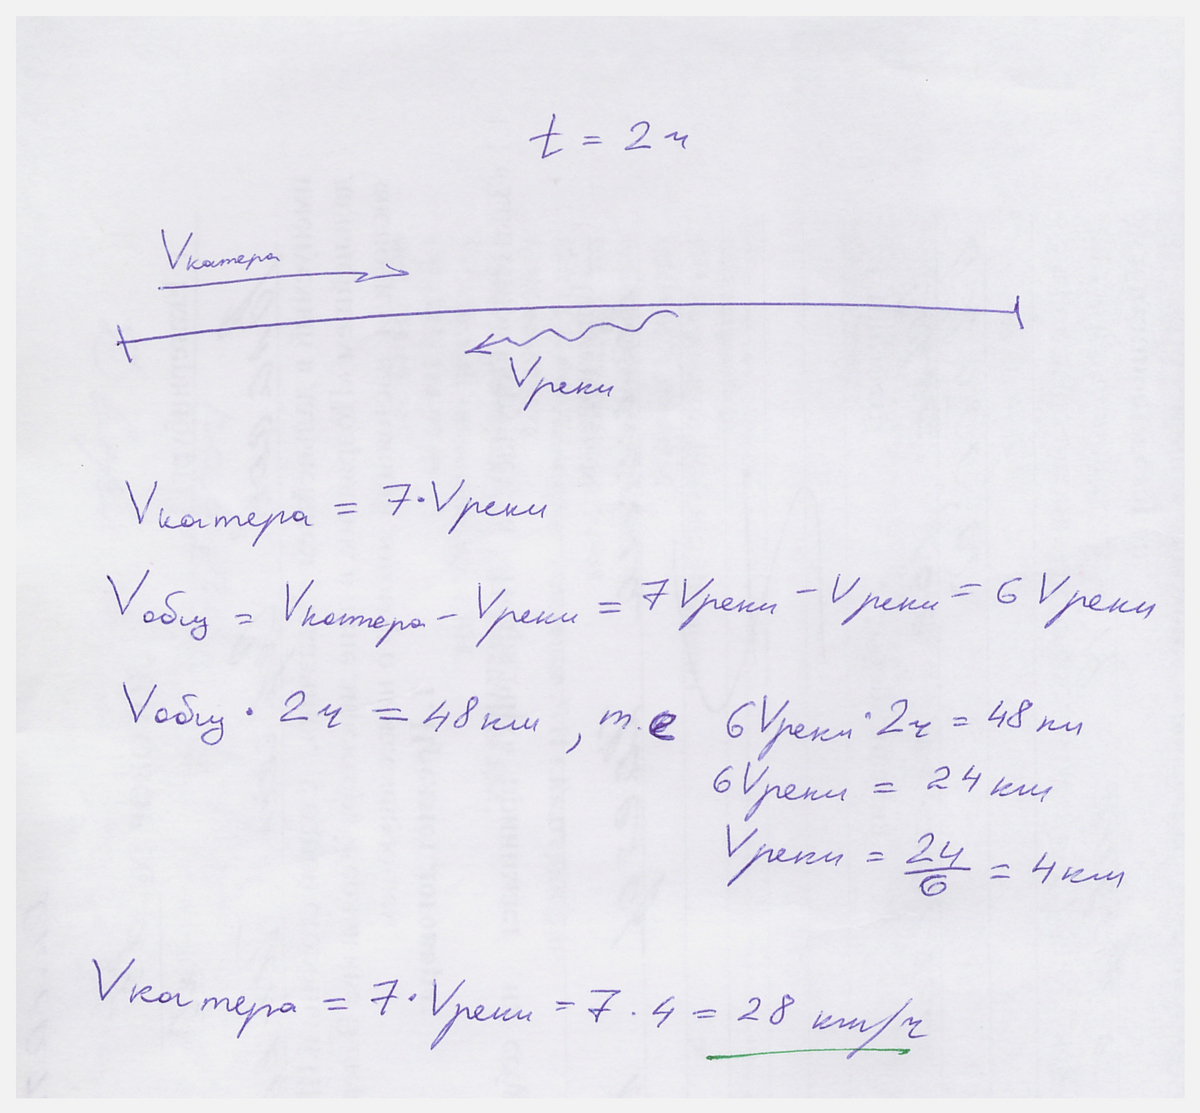 t = 2 ч
Vкатера
Vреки
Vкатера = 7·Vреки
Vобщ = Vкатера - Vреки = 7Vреки - Vреки = 6Vреки
Vобщ · 2ч = 48км, т.е 6Vреки · 2ч = 48км
6Vреки = 24км
Vреки = 24/6 = 4км
Vкатера = 7·Vреки = 7·4 = 28 км/ч